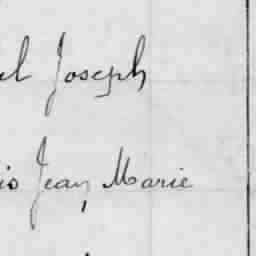 el Joseph
io Jean Marie